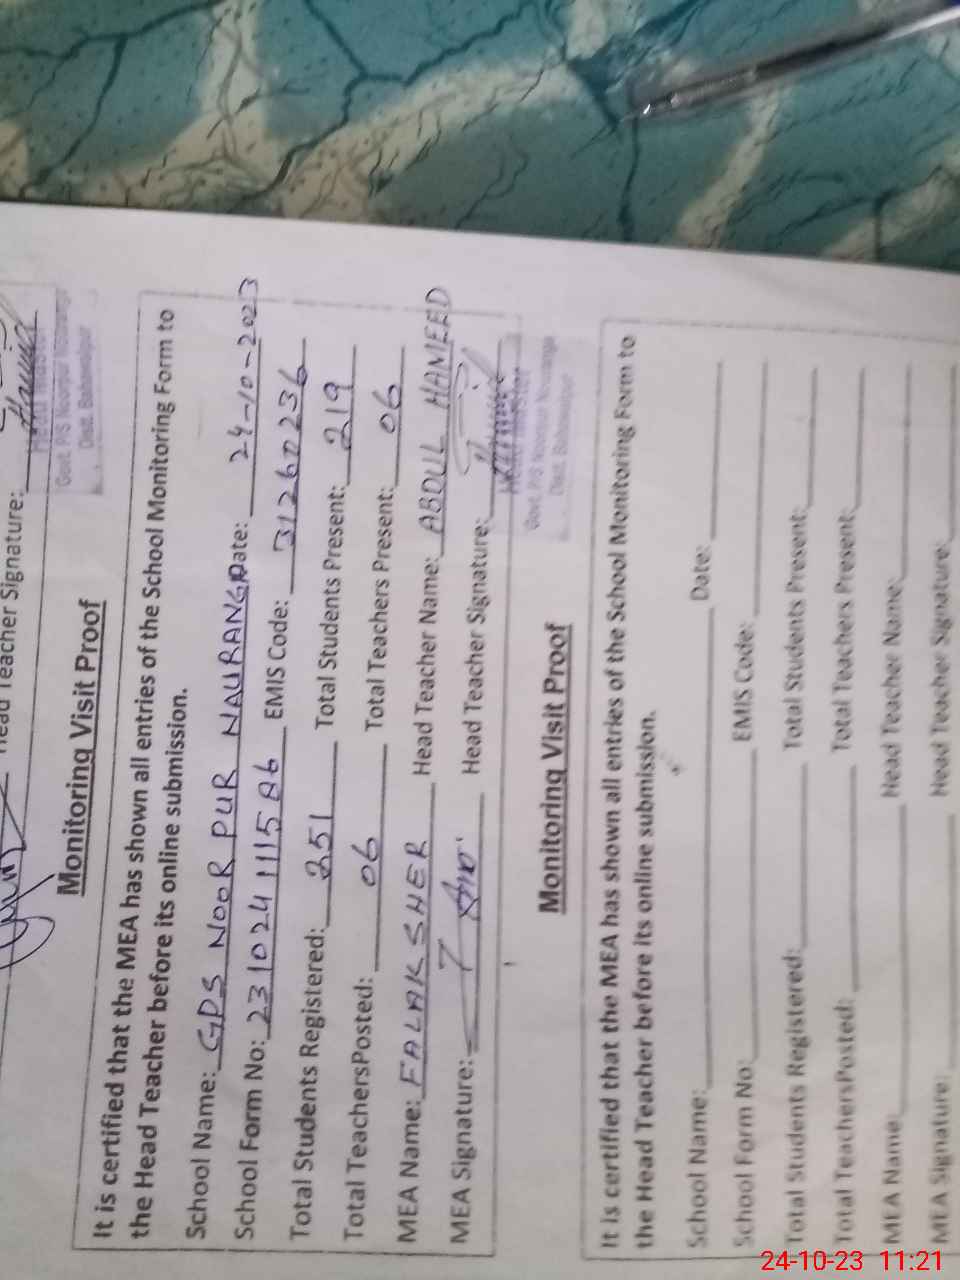 Head Teacher Signature:
Govt. P/S Noorpur Nouranga
Distt. Bahawalpur
Monitoring Visit Proof
It is certified that the MEA has shown all entries of the School Monitoring Form to
the Head Teacher before its online submission.
School Name: GPS NOOR PUR NAURANGA Date: 24-10-2023
School Form No: 2310241115A6 EMIS Code: 31260236
Total Students Registered: 251 Total Students Present: 219
Total TeachersPosted: 06 Total Teachers Present: 06
MEA Name: FALAK SHER Head Teacher Name: ABDUL HAMEED
MEA Signature: Head Teacher Signature:
Govt. P/S Noorpur Nouranga
Distt. Bahawalpur
Monitoring Visit Proof
It is certified that the MEA has shown all entries of the School Monitoring Form to
the Head Teacher before its online submission.
School Name: Date:
School Form No: EMIS Code:
Total Students Registered: Total Students Present:
Total TeachersPosted: Total Teachers Present:
MEA Name: Head Teacher Name:
MEA Signature: Head Teacher Signature:
24-10-23 11:21